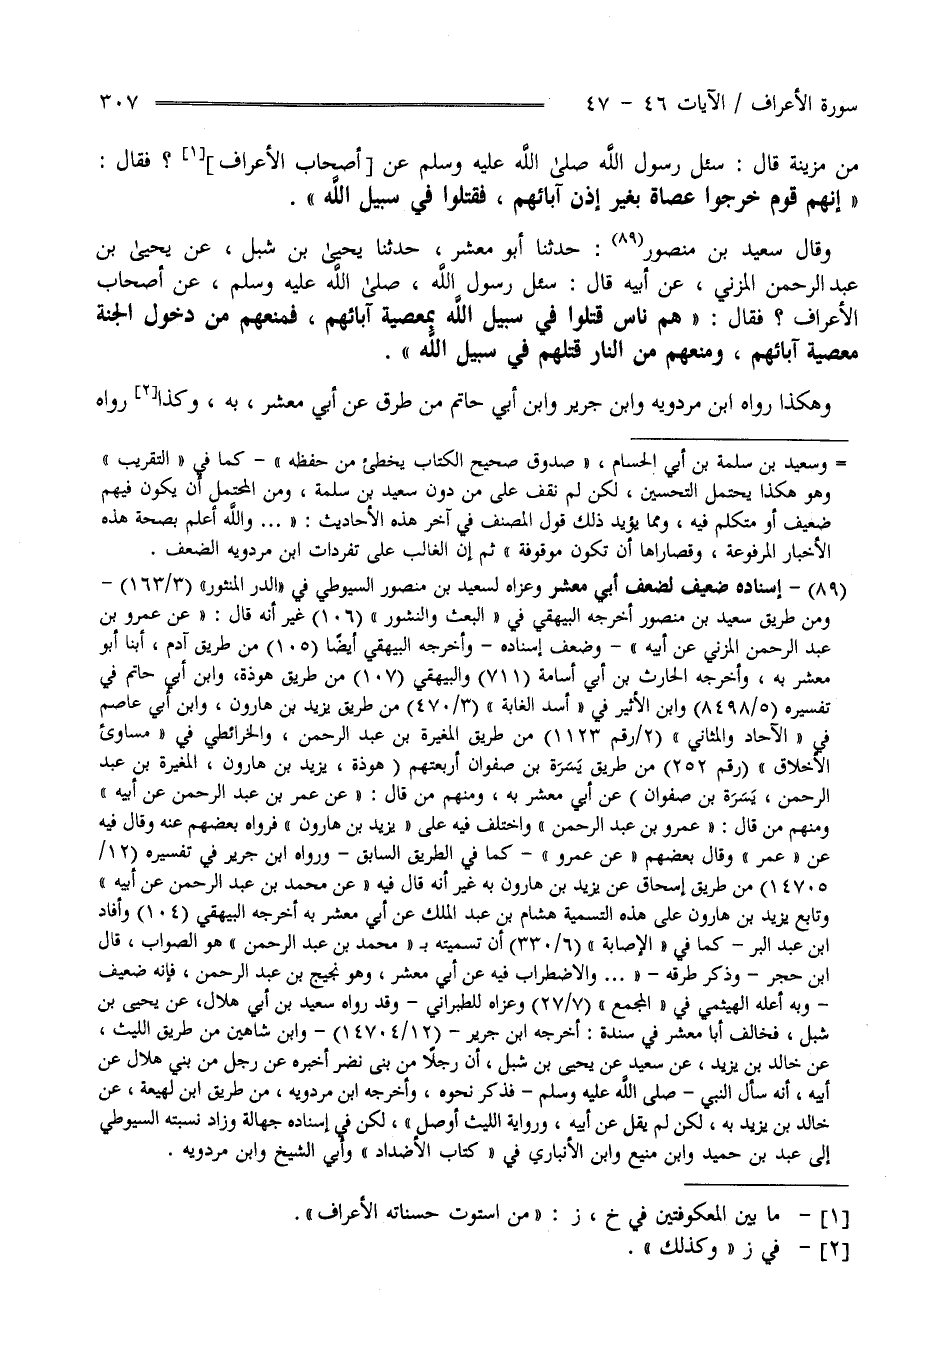 سورة الأعراف / الآيات ٤٦ - ٤٧ ٣٠٧
من مزينة قال : سئل رسول اللَّه صلىٰ اللَّه عليه وسلم عن [أصحاب الأعراف][١] ؟ فقال :
« إنهم قوم خرجوا عصاة بغير إذن آبائهم ، فقتلوا في سبيل اللَّه » .
وقال سعيد بن منصور(٨٩) : حدثنا أبو معشر ، حدثنا يحيىٰ بن شبل ، عن يحيىٰ بن
عبد الرحمن المزني ، عن أبيه قال : سئل رسول اللَّه ، صلىٰ اللَّه عليه وسلم ، عن أصحاب
الأعراف ؟ فقال : « هم ناس قتلوا في سبيل اللَّه بمعصية آبائهم ، فمنعهم من دخول الجنة
معصية آبائهم ، ومنعهم من النار قتلهم في سبيل اللَّه » .
وهكذا رواه ابن مردويه وابن جرير وابن أبي حاتم من طرق عن أبي معشر ، به ، وكذا[٢] رواه
= وسعيد بن سلمة بن أبي الحسام ، « صدوق صحيح الكتاب يخطئ من حفظه » - كما في « التقريب »
وهو هكذا يحتمل التحسين ، لكن لم نقف على من دون سعيد بن سلمة ، ومن المحتمل أن يكون فيهم
ضعيف أو متكلم فيه ، ومما يؤيد ذلك قول المصنف في آخر هذه الأحاديث : « ... واللَّه أعلم بصحة هذه
الأخبار المرفوعة ، وقصاراها أن تكون موقوفة » ثم إن الغالب على تفردات ابن مردويه الضعف .
(٨٩) - إسناده ضعيف لضعف أبي معشر وعزاه لسعيد بن منصور السيوطي في «الدر المنثور» (١٦٣/٣) -
ومن طريق سعيد بن منصور أخرجه البيهقي في « البعث والنشور » (١٠٦) غير أنه قال : « عن عمرو بن
عبد الرحمن المزني عن أبيه » - وضعف إسناده - وأخرجه البيهقي أيضًا (١٠٥) من طريق آدم ، أبنا أبو
معشر به ، وأخرجه الحارث بن أبي أسامة (٧١١) والبيهقي (١٠٧) من طريق هوذة، وابن أبي حاتم في
تفسيره (٨٤٩٨/٥) وابن الأثير في « أسد الغابة » (٤٧٠/٣) من طريق يزيد بن هارون ، وابن أبي عاصم
في « الآحاد والمثاني » (٢/رقم ١١٢٣) من طريق المغيرة بن عبد الرحمن ، والخرائطي في « مساوئ
الأخلاق » (رقم ٢٥٢) من طريق يَسَرَة بن صفوان أربعتهم ( هوذة ، يزيد بن هارون ، المغيرة بن عبد
الرحمن ، يَسَرَة بن صفوان ) عن أبي معشر به ، ومنهم من قال : « عن عمر بن عبد الرحمن عن أبيه »
ومنهم من قال : « عمرو بن عبد الرحمن » واختلف فيه على « يزيد بن هارون » فرواه بعضهم عنه وقال فيه
عن « عمر » وقال بعضهم « عن عمرو » - كما في الطريق السابق - ورواه ابن جرير في تفسيره (١٢/
١٤٧٠٥) من طريق إسحاق عن يزيد بن هارون به غير أنه قال فيه « عن محمد بن عبد الرحمن عن أبيه »
وتابع يزيد بن هارون على هذه التسمية هشام بن عبد الملك عن أبي معشر به أخرجه البيهقي (١٠٤) وأفاد
ابن عبد البر - كما في « الإصابة » (٣٣٠/٦) أن تسميته بـ « محمد بن عبد الرحمن » هو الصواب ، قال
ابن حجر - وذكر طرقه - « ... والاضطراب فيه عن أبي معشر ، وهو نجيح بن عبد الرحمن ، فإنه ضعيف
- وبه أعله الهيثمي في « المجمع » (٢٧/٧) وعزاه للطبراني - وقد رواه سعيد بن أبي هلال، عن يحيى بن
شبل ، فخالف أبا معشر في سندة : أخرجه ابن جرير - (١٤٧٠٤/١٢) - وابن شاهين من طريق الليث ،
عن خالد بن يزيد ، عن سعيد عن يحيى بن شبل ، أن رجلًا من بنى نضر أخبره عن رجل من بني هلال عن
أبيه ، أنه سأل النبي - صلى اللَّه عليه وسلم - فذكر نحوه ، وأخرجه ابن مردويه ، من طريق ابن لهيعة ، عن
خالد بن يزيد به ، لكن لم يقل عن أبيه ، ورواية الليث أوصل » ، لكن في إسناده جهالة وزاد نسبته السيوطي
إلى عبد بن حميد وابن منيع وابن الأنباري في « كتاب الأضداد » وأبي الشيخ وابن مردويه .
[١] - ما بين المعكوفتين في خ ، ز : «من استوت حسناته الأعراف» .
[٢] - في ز « وكذلك » .